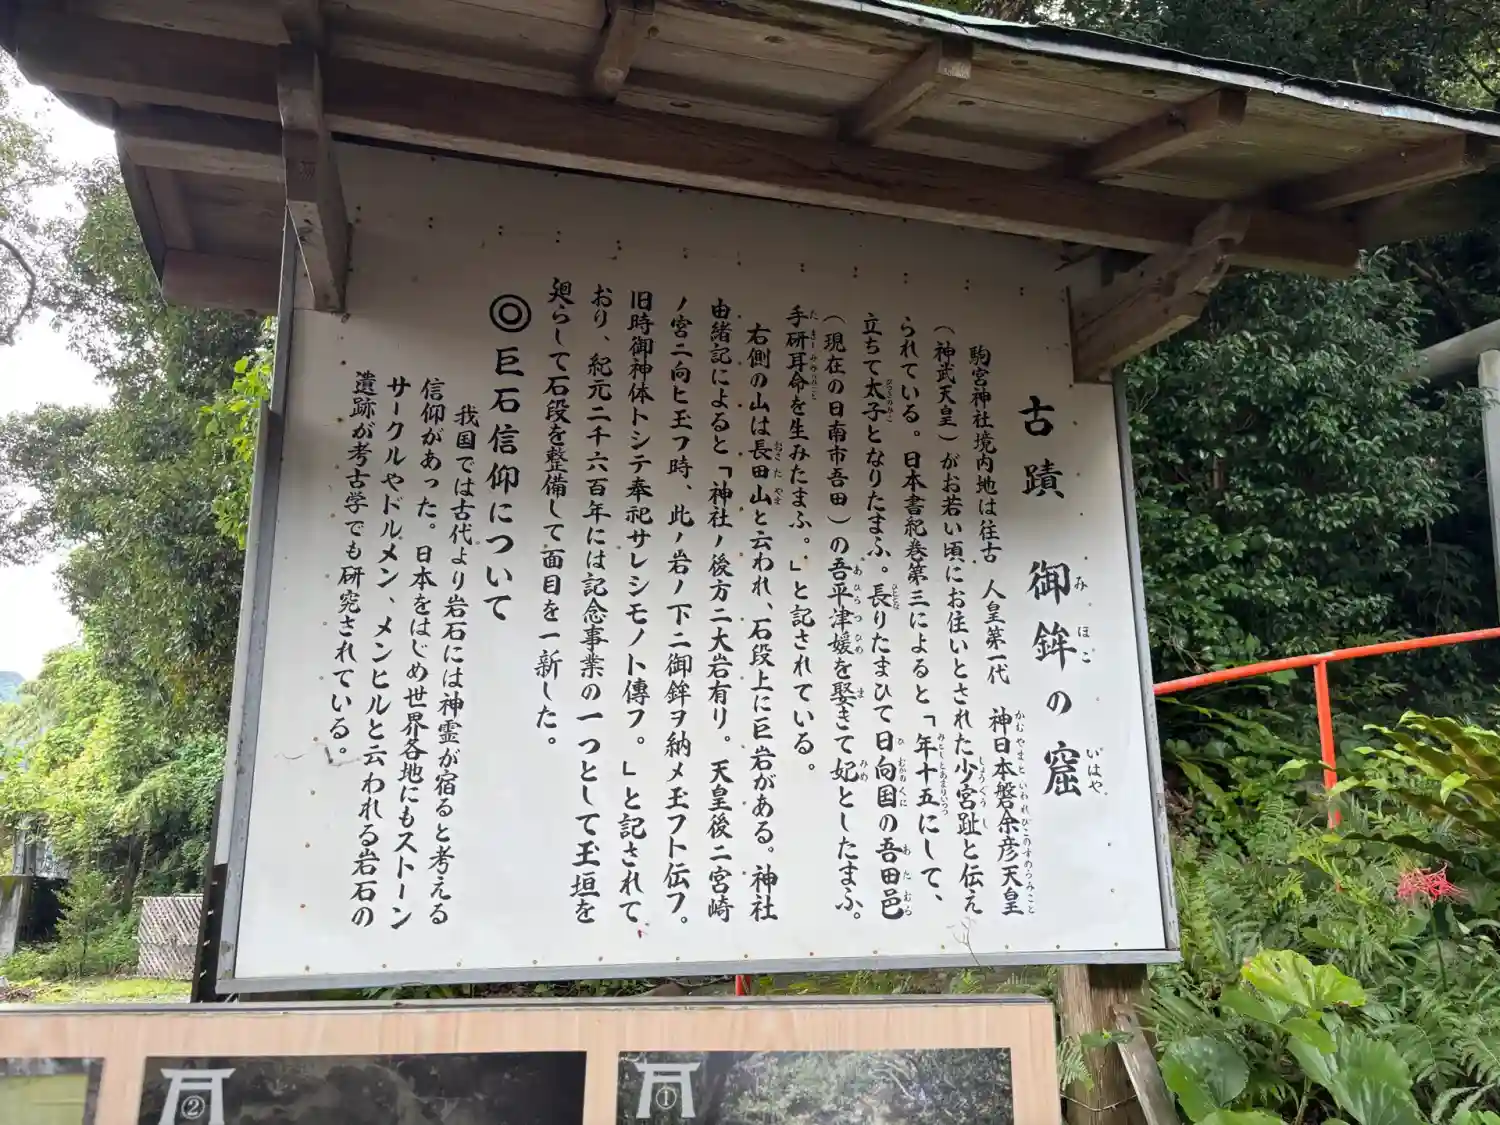 古蹟 御鉾の窟
みほこ いはや
駒宮神社境内地は往古 人皇第一代 神日本磐余彦天皇
かむやまといわれびこのすめらみこと
(神武天皇)がお若い頃にお住いとされた少宮趾と伝え
しょうぐうし
られている。日本書紀巻第三によると「年十五にして、
みとしとあまりいつつ
立ちて太子となりたまふ。長りたまひて日向国の吾田邑
ひととな ひむかのくに あたむら
(現在の日南市吾田)の吾平津媛を娶きて妃としたまふ。
あひらつひめ ま みめ
手研耳命を生みたまふ。」と記されている。
右側の山は長田山と云われ、石段上に巨岩がある。神社
おさた やま
由緒記によると「神社ノ後方ニ大岩有リ。天皇後ニ宮崎
ノ宮ニ向ヒ玉フ時、此ノ岩ノ下ニ御鉾ヲ納メ玉フト伝フ。
旧時御神体トシテ奉祀サレシモノト傳フ。」と記されて
おり、紀元二千六百年には記念事業の一つとして玉垣を
廻らして石段を整備して面目を一新した。
◎巨石信仰について
我国では古代より岩石には神霊が宿ると考える
信仰があった。日本をはじめ世界各地にもストーン
サークルやドルメン、メンヒルと云われる岩石の
遺跡が考古学でも研究されている。
②
①